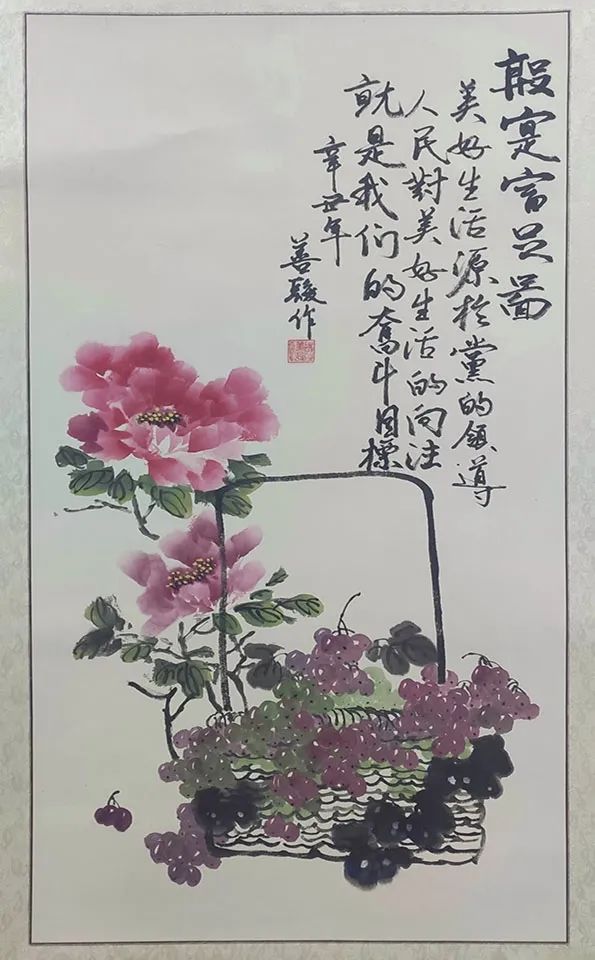 殷寔富足啚
美好生活源於黨的領導
人民對美好生活的向往
就是我们的奮斗目標
辛丑年
善駿作